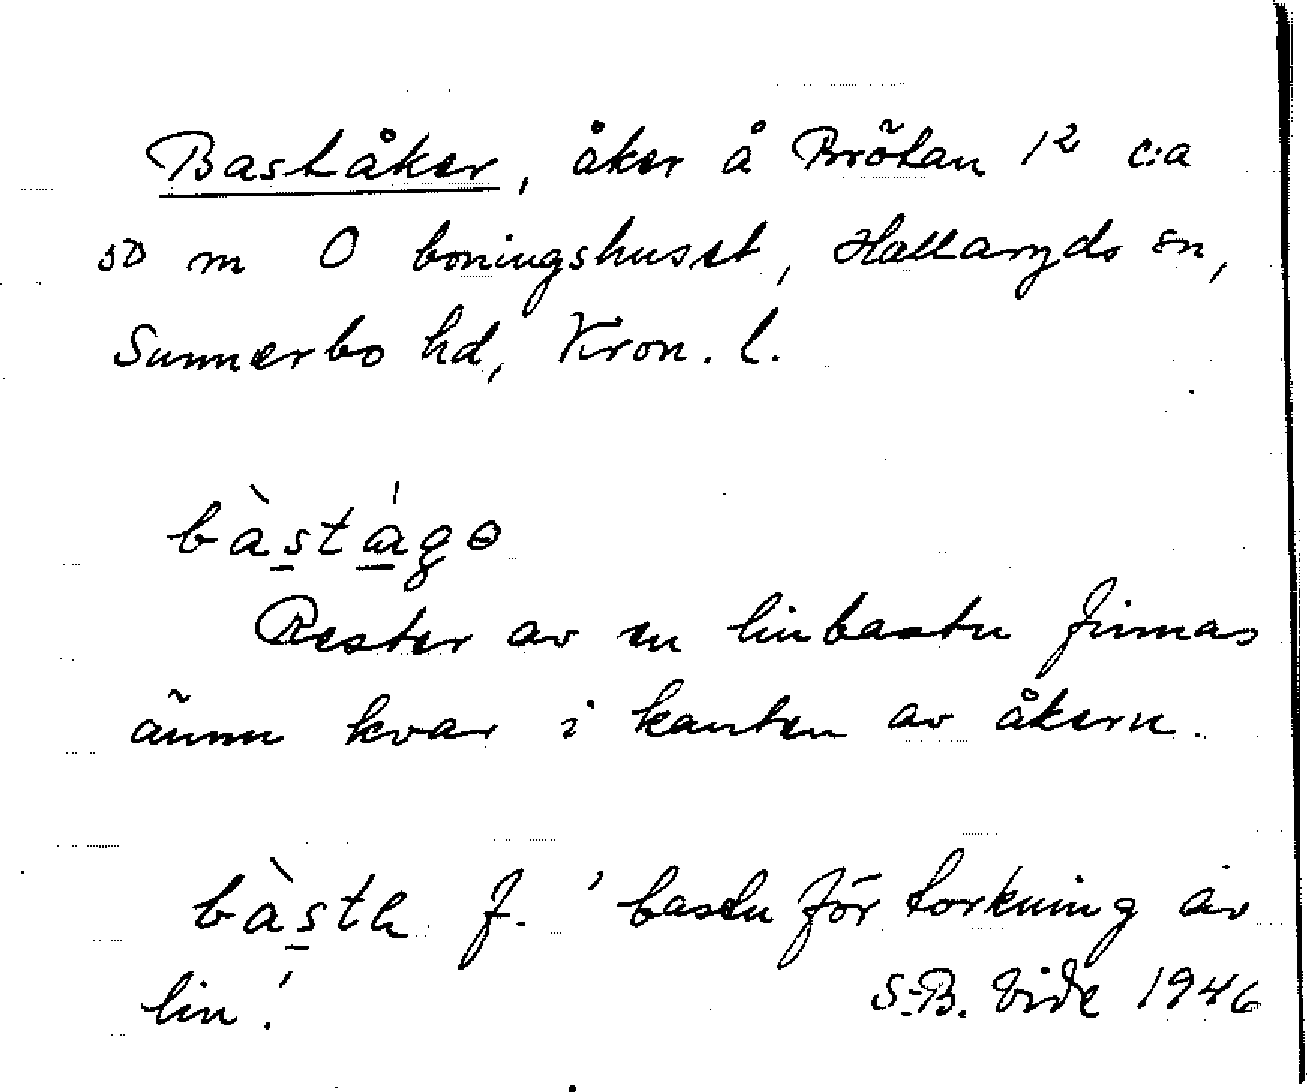 Baståker, åker å Brötan 1² c:a
50 m O boningshuset, Hallaryds sn,
Sunnerbo hd, Kron. l.
bàstág
Rester av en linbastu finnas
ännu kvar i kanten av åkern.
bàsta f. 'bastu för torkning av
lin.'
S-B. Vide 1946